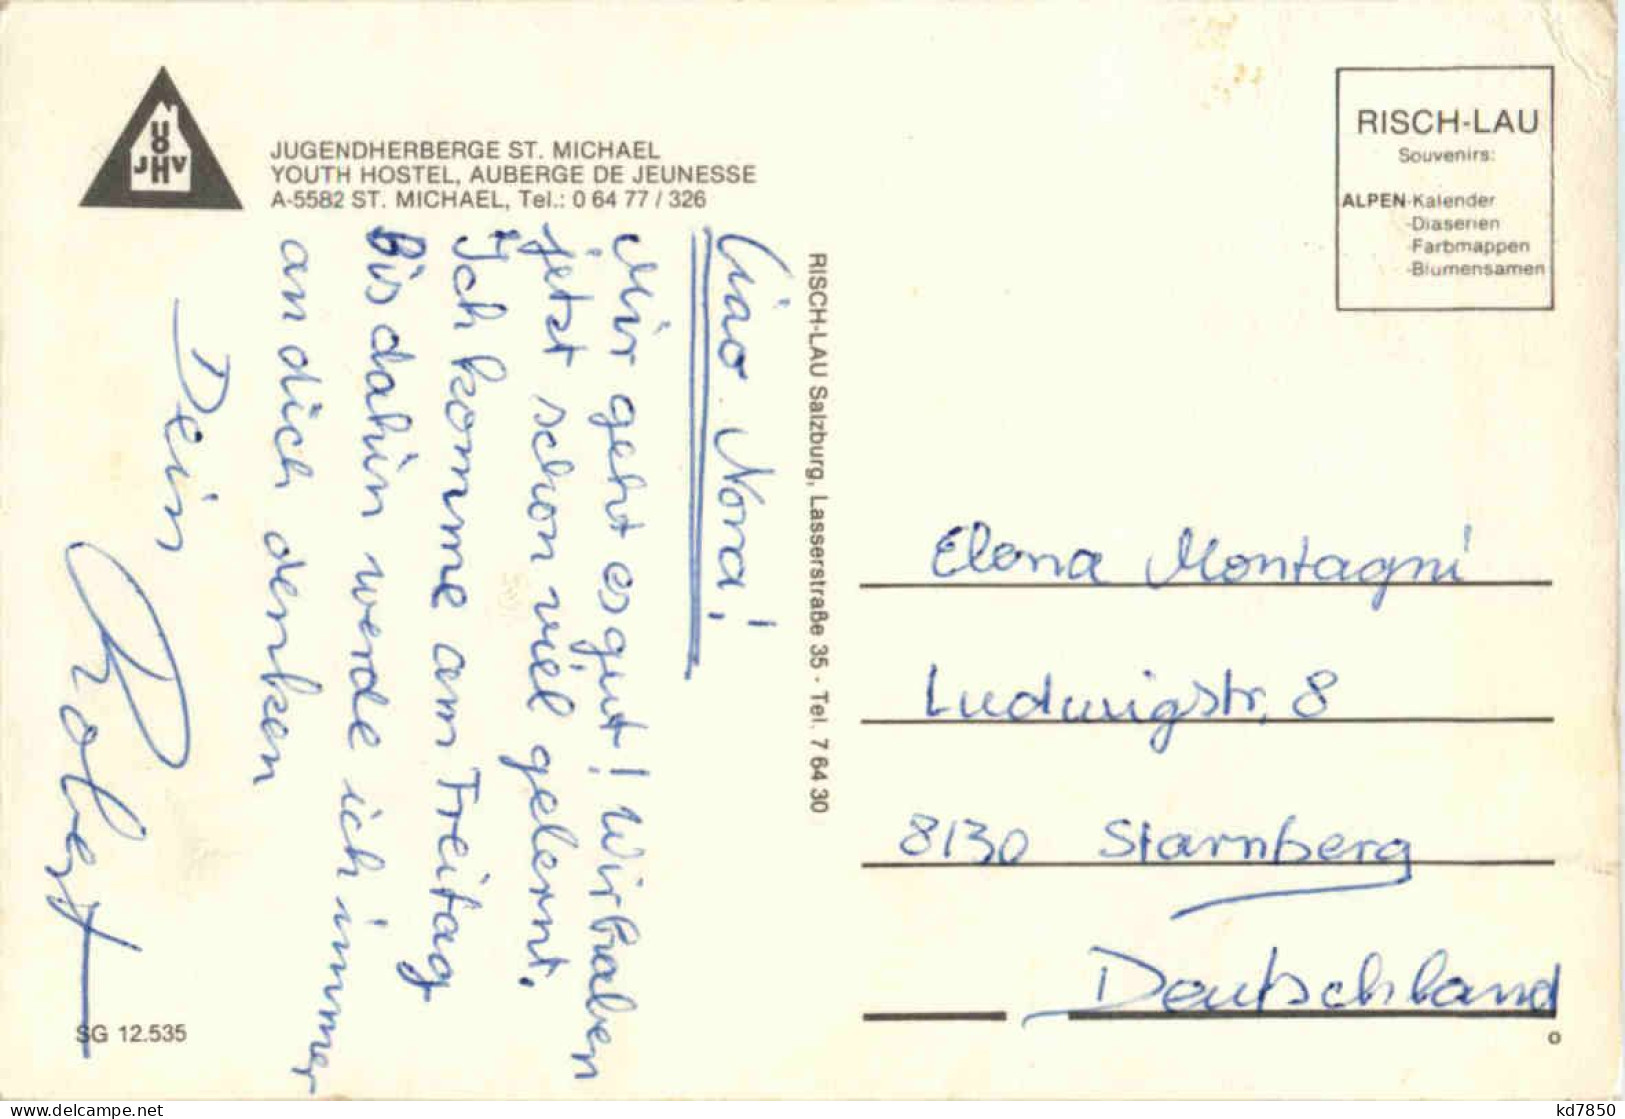 U
O
JHV
JUGENDHERBERGE ST. MICHAEL
YOUTH HOSTEL, AUBERGE DE JEUNESSE
A-5582 ST. MICHAEL, Tel.: 0 64 77 / 326
Ciao Nora!
Mir geht es gut! Wir haben
jetzt schon viel gelernt.
Ich komme am Freitag
Bis dahin werde ich immer
an dich denken
Dein
Robert
SG 12.535
RISCH-LAU Salzburg, Lasserstraße 35 - Tel. 7 64 30
RISCH-LAU
Souvenirs:
ALPEN-Kalender
-Diaserien
-Farbmappen
-Blumensamen
Elena Montagni
Ludwigstr. 8
8130 Starnberg
Deutschland
o
www.delcampe.net
kd7850